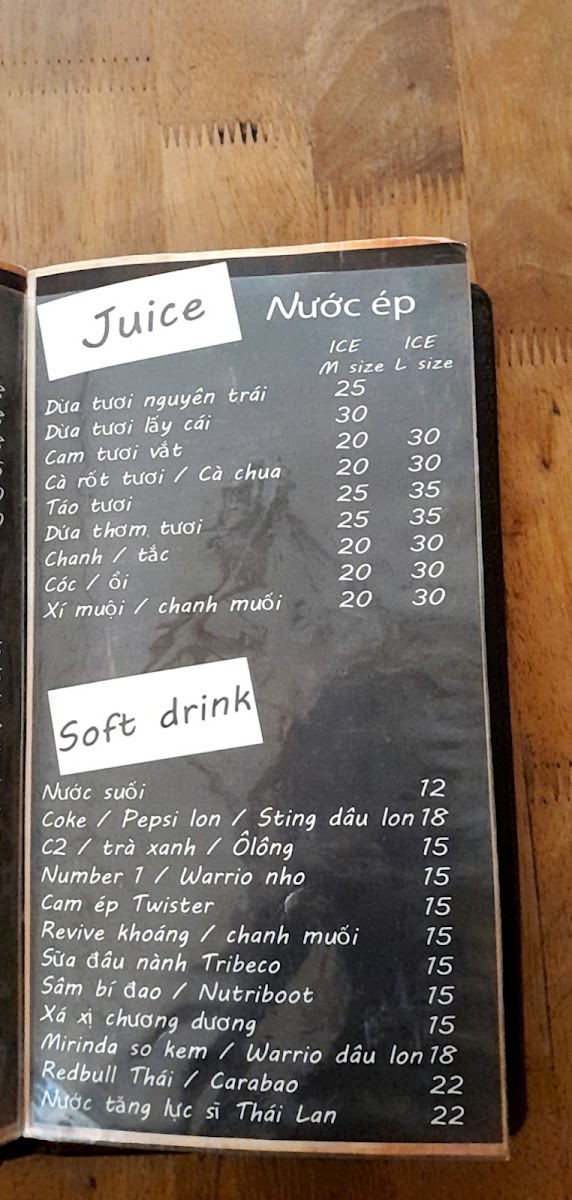 Juice Nước ép
ICE ICE
M size L size
Dừa tươi nguyên trái 25
Dừa tươi lấy cái 30
Cam tươi vắt 20 30
Cà rốt tươi / Cà chua 20 30
Táo tươi 25 35
Dứa thơm tươi 25 35
Chanh / tắc 20 30
Cóc / ổi 20 30
Xí muội / chanh muối 20 30
Soft drink
Nước suối 12
Coke / Pepsi lon / Sting dâu lon 18
C2 / trà xanh / Ôlông 15
Number 1 / Warrio nho 15
Cam ép Twister 15
Revive khoáng / chanh muối 15
Sữa đâu nành Tribeco 15
Sâm bí đao / Nutriboot 15
Xá xị chương dương 15
Mirinda so kem / Warrio dâu lon 18
Redbull Thái / Carabao 22
Nước tăng lực sĩ Thái Lan 22